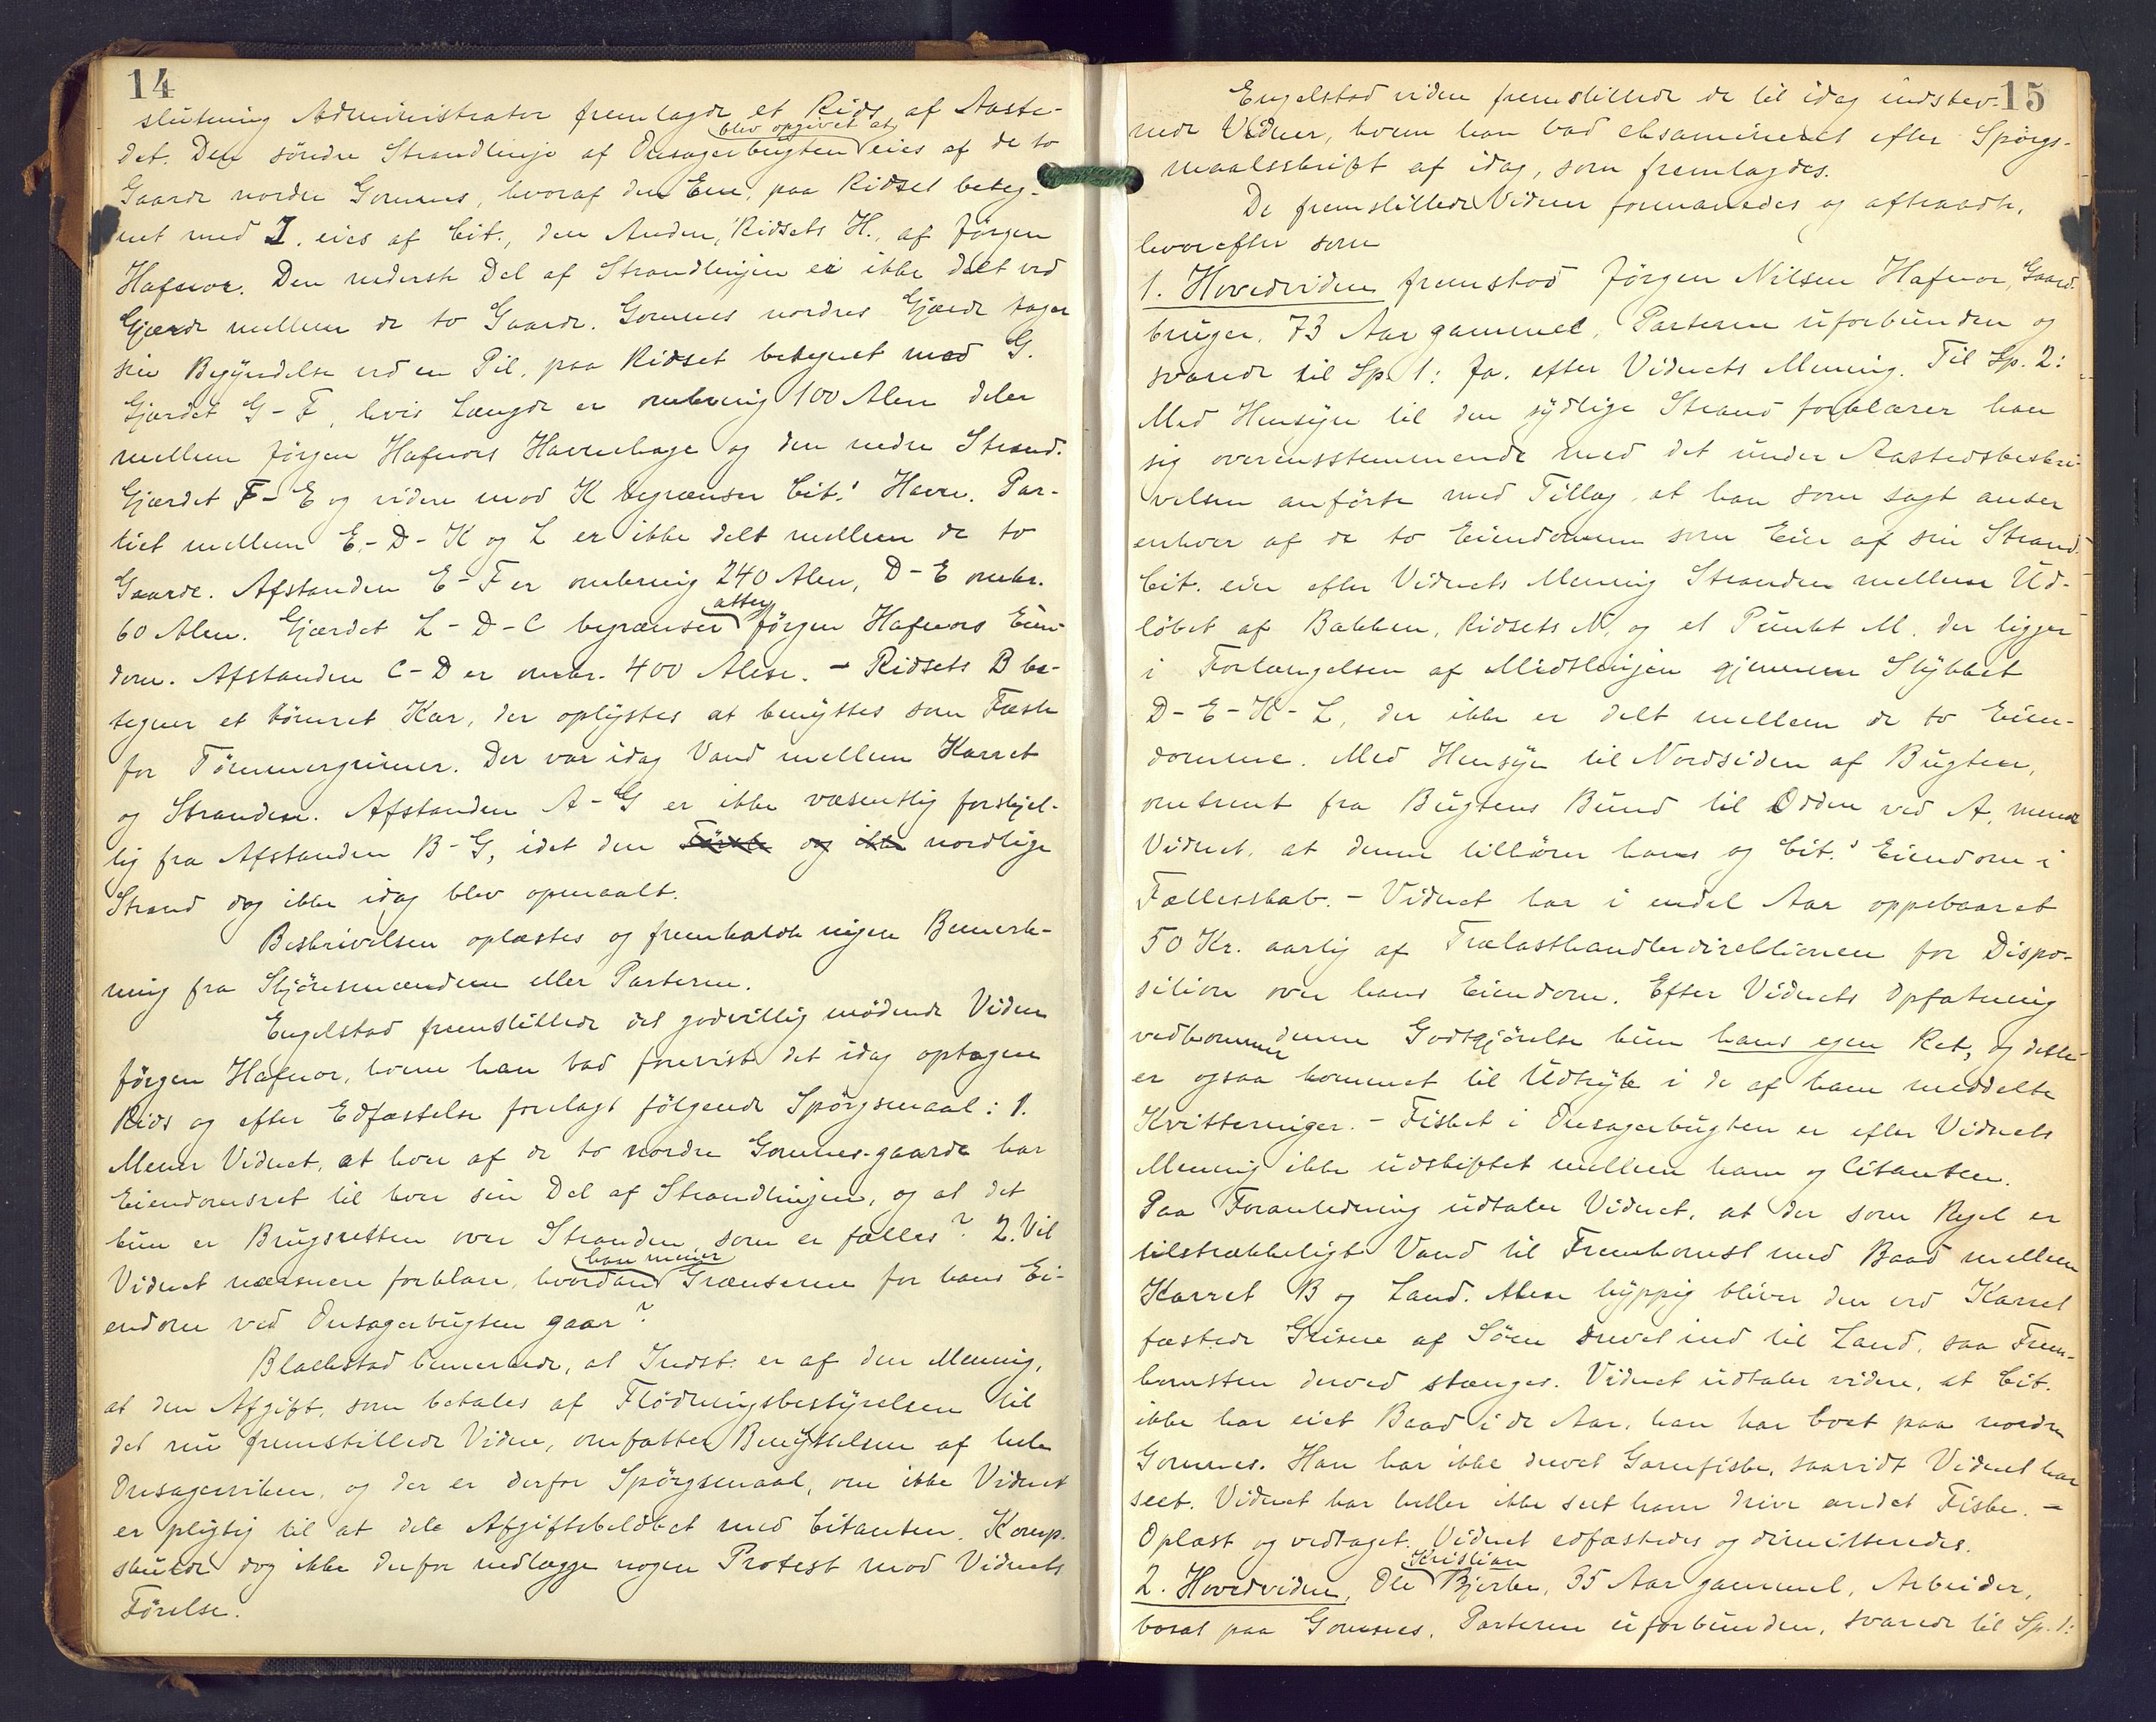 14
slutning Administrator fremlagde et Rids af Aaste-
blev opgivet at
det. Den söndre Strandlinje af Onsagerbugten eies af de to
Gaarde nordre Gommes, hvoraf den Ene, paa Ridset beteg-
net med I. eies af Cit., den Anden, Ridsets H., af Jörgen
Hafnor. Den nederste Del af Strandlinjen er ikke delt ved
Gjærde mellem de to Gaarde. Gommes nordres Gjærde tager
sin Begyndelse ved en Pil, paa Ridset betegnet med G.
Gjærdet G-F, hvis Længde er omkring 100 Alen deler
mellem Jörgen Hafnors Havnehage og den nedre Strand.
Gjærdet F-E og videre mod K begrænser Cit.' Havn. Par-
tiet mellem E-D-K og L er ikke delt mellem de to
Gaarde. Afstanden E-F er omkring 240 Alen, D-E omkr.
atter
60 Alen. Gjærdet L-D-C begrænser Jörgen Hafnors Eien-
dom. Afstanden C-D er omkr. 400 Alen. - Ridsets B be-
tegner et tömret Kar, der oplystes at benyttes som Fæste
for Tömmergrimer. Der var idag Vand mellem Karret
og Stranden. Afstanden A-G er ikke væsentlig forskjel-
lig fra Afstanden B-G, idet den og ikke nordlige
Strand dog ikke idag blev opmaalt.
Beskrivelsen oplæstes og fremkaldte ingen Bemærk-
ning fra Skjönsmændene eller Parterne.
Engelstad fremstillede det godvillig mödende Vidne
Jörgen Hafnor, hvem han bad forevist det idag optagne
Rids og efter Edfæstelse forelagt fölgende Spörgsmaal: 1.
Mener Vidnet, at hver af de to nordre Gommes-gaarde har
Eiendomsret til hver sin Del af Strandlinjen, og at det
kun er Brugsretten over Stranden som er fælles? 2. Vil
han mener
Vidnet nærmere forklare, hvordan Grænserne for hans Ei-
endom ved Onsagerbugten gaar?
Blackstad bemærkede, at Indst. er af den Mening,
at den Afgift, som betales af Flödningsbestyrelsen til
det nu fremstillede Vidne, omfatter Benyttelsen af hele
Onsagerviken, og der er derfor Spörgsmaal, om ikke Vidnet
er pligtig til at dele Afgiftsbelöbet med Citanten. Komp.
skulde dog ikke derfor nedlægge nogen Protest mod Vidnets
Förelse.
15
Engelstad viden fremstillede de til idag indstev-
nede Vidner, hvem han bad eksamineret efter Spörgs-
maalsskrift af idag, som fremlagdes.
De fremstillede Vidner formanedes og aftraadte,
hvorefter som
1. Hovedvidne fremstod Jörgen Nilsen Hafnor, Gaard-
bruger, 73 Aar gammel, Parterne uforbunden og
svarede til Sp. 1: Ja, efter Vidnets Mening. Til Sp. 2:
Med Hensyn til den sydlige Strand forklarer han
sig overensstemmende med det under Aastedsbeskri-
velsen anförte med Tillæg, at han som sagt anser
enhver af de to Eiendomme som Eier af sin Strand.
Cit. eier efter Vidnets Mening Stranden mellem Ud-
löbet af Bækken, Ridsets N, og et Punkt M, der ligger
i Forlængelsen af Midtlinjen gjennem Stykket
D-E-K-L, der ikke er delt mellem de to Eien-
domme. Med Hensyn til Nordsiden af Bugten,
omtrent fra Bugtens Bund til Odden ved A, mener
Vidnet, at denne tilhörer hans og Cit.' Eiendom i
Fællesskab. - Vidnet har i endel Aar oppebaaret
50 Kr. aarlig af Trælasthandlerdirektionen for Dispo-
sition over hans Eiendom. Efter Vidnets Opfatning
vedkommer denne Godtgjörelse kun hans egen Ret, og dette
er ogsaa kommet til Udtryk i de af ham meddelte
Kvitteringer. - Fisket i Onsagerbugten er efter Vidnets
Mening ikke udskiftet mellem ham og Citanten.
Paa Foranledning udtaler Vidnet, at der som Regel er
tilstrækkeligt Vand til Fremkomst med Baad mellem
Karret B og Land. Men hyppig bliver den ved Karret
fæstede Grime af Söen drevet ind til Land, saa Frem-
komsten derved stænges. Vidnet udtaler videre, at Cit.
ikke har eiet Baad i de Aar, han har boet paa nordre
Gommes. Han har ikke drevet Garnfiske, saavidt Vidnet har
seet. Vidnet har heller ikke seet ham drive andet Fiske. -
Oplæst og vedtaget. Vidnet edfæstedes og dimitteredes.
Kristian
2. Hovedvidne, Ole Bjerke, 35 Aar gammel, Arbeider,
bosat paa Gommes, Parterne uforbunden, svarede til Sp. 1: